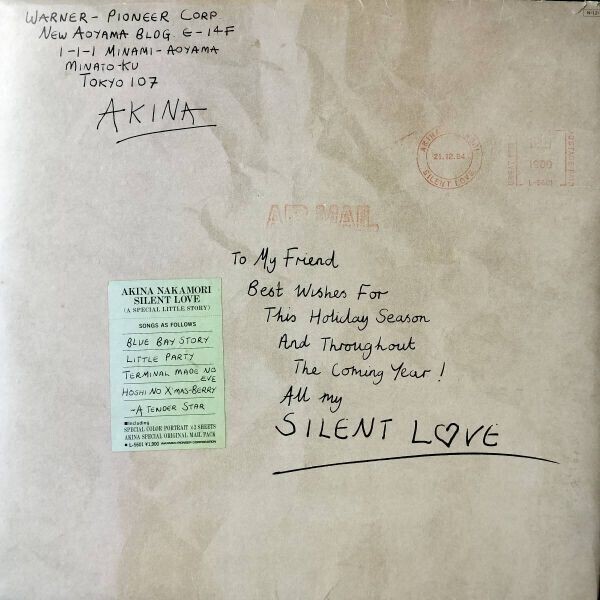 WARNER - PIONEER CORP
NEW AOYAMA BLDG E-14F
1-1-1 MINAMI-AOYAMA
MINATO-KU
TOKYO 107
AKINA
AKINA
21.12.84
SILENT LOVE
1900
L-5601
AIR MAIL
To My Friend
Best Wishes For
This Holiday Season
And Throughout
The Coming Year!
All my
SILENT L♡VE
AKINA NAKAMORI
SILENT LOVE
(A SPECIAL LITTLE STORY)
SONGS AS FOLLOWS
BLUE BAY STORY
LITTLE PARTY
TERMINAL MADE NO
EVE
HOSHI NO X'MAS-BERRY
-A TENDER STAR
■Including
SPECIAL COLOR PORTRAIT ×3 SHEETS
AKINA SPECIAL ORIGINAL MAIL PACK
● L-5601 ¥1,900 WARNER-PIONEER CORPORATION